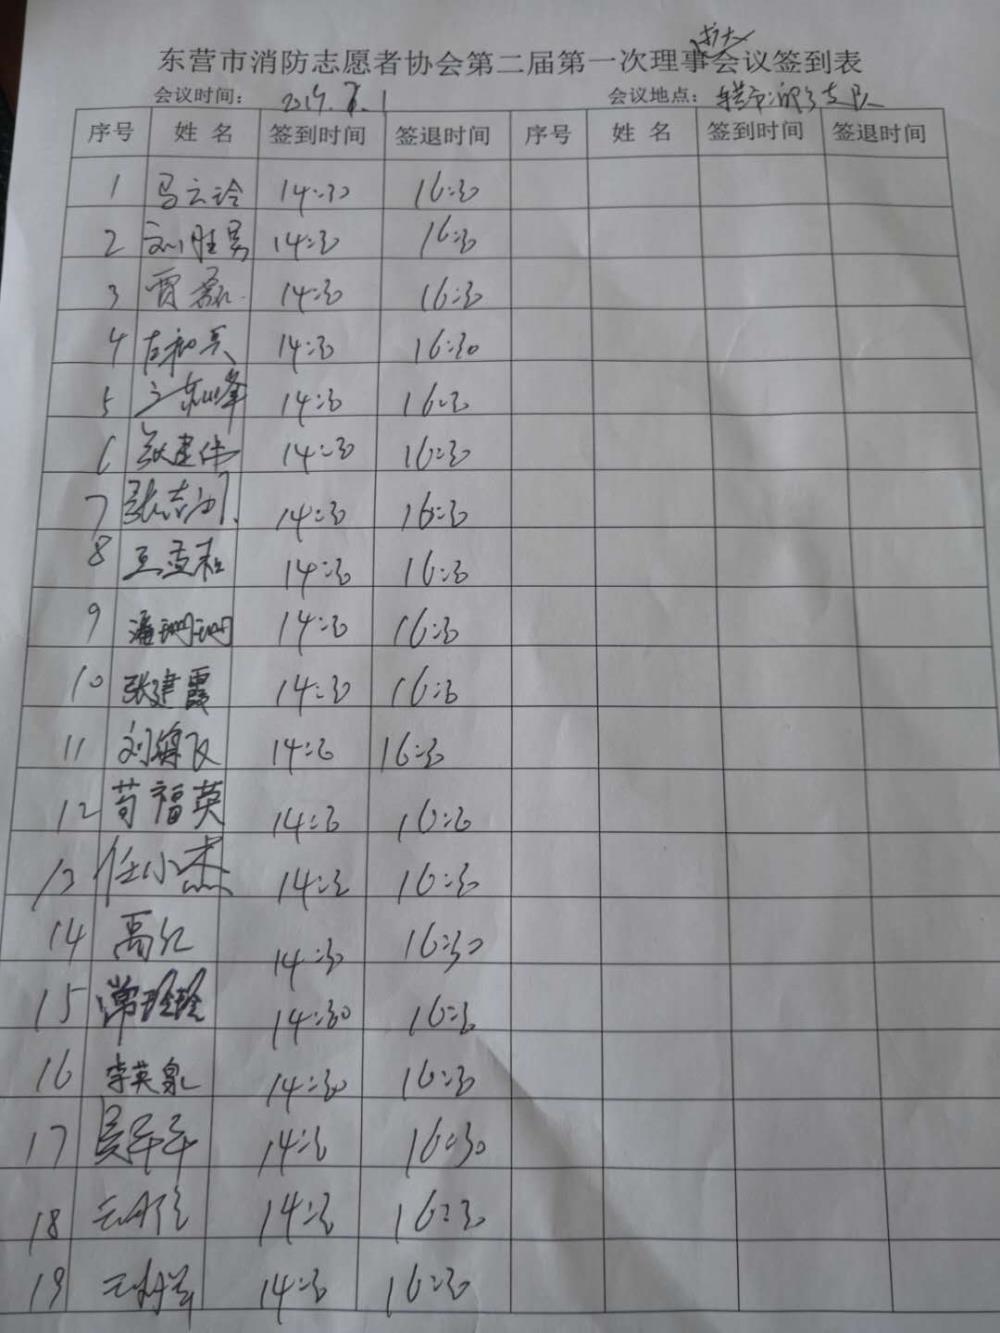 扩大
东营市消防志愿者协会第二届第一次理事会议签到表
会议时间： 2019.7.1 会议地点： 支队
序号 姓名 签到时间 签退时间 序号 姓名 签到时间 签退时间
1 马云玲 14:30 16:30
2 刘胜男 14:30 16:30
3 贾磊 14:30 16:30
4 14:30 16:30
5 14:30 16:30
6 张建伟 14:30 16:30
7 14:30 16:30
8 王孟和 14:30 16:30
9 潘珊珊 14:30 16:30
10 张建霞 14:30 16:30
11 刘海飞 14:30 16:30
12 苟福英 14:30 16:30
13 任小杰 14:30 16:30
14 14:30 16:30
15 常玲玲 14:30 16:30
16 李英泉 14:30 16:30
17 吴军军 14:30 16:30
18 14:30 16:30
19 14:30 16:30